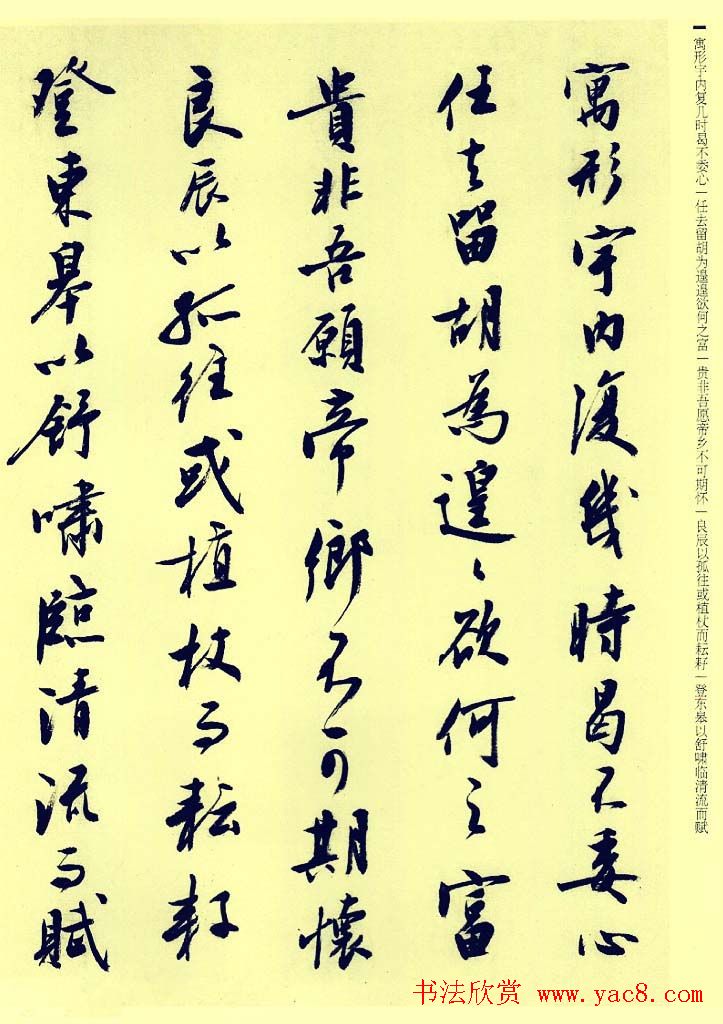 寓形宇内復幾時曷不委心
任去留胡為遑々欲何之富
貴非吾願帝鄉不可期懷
良辰以孤往或植杖而耘耔
登東皋以舒嘯臨清流而賦
寓形宇内复几时曷不委心|任去留胡为遑遑欲何之富|贵非吾愿帝乡不可期怀|良辰以孤往或植杖而耘耔|登东皋以舒啸临清流而赋
书法欣赏 www.yac8.com